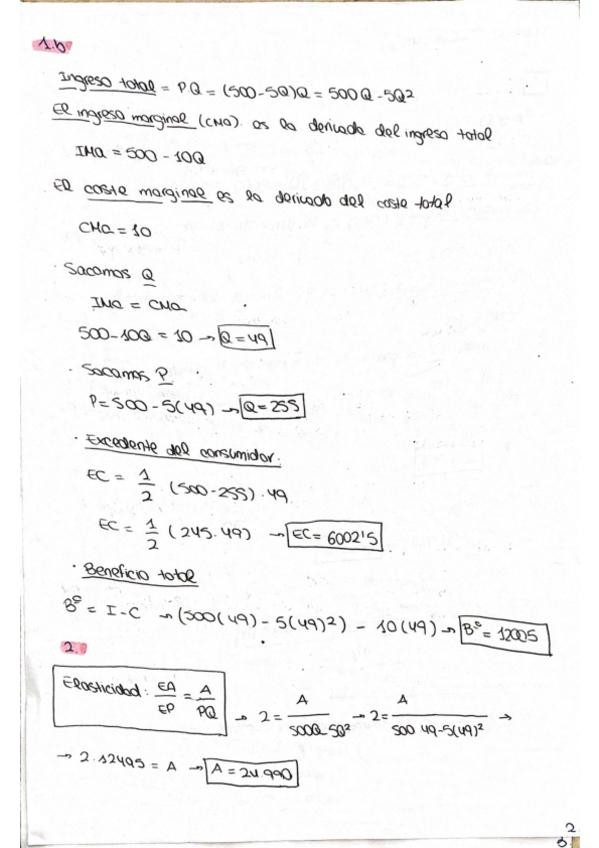 1.b
Ingreso total = PQ = (500-5Q)Q = 500Q - 5Q²
El ingreso marginal (CMa). es la derivada del ingreso total
IMa = 500 - 10Q
El coste marginal es la derivada del coste total
CMa = 10
· Sacamos Q
IMa = CMa
500-10Q = 10 → Q = 49
· Sacamos P
P = 500 - 5(49) → Q = 255
· Excedente del consumidor.
EC = 1/2 · (500-255) · 49
EC = 1/2 (245 · 49) → EC = 6002'5
· Beneficio total
Bº = I - C → (500(49) - 5(49)²) - 10(49) → Bº = 12005
2.
Elasticidad: EA/EP = A/PQ → 2 = A/500Q-5Q² → 2 = A/500·49-5(49)² →
→ 2·12495 = A → A = 24.990
2